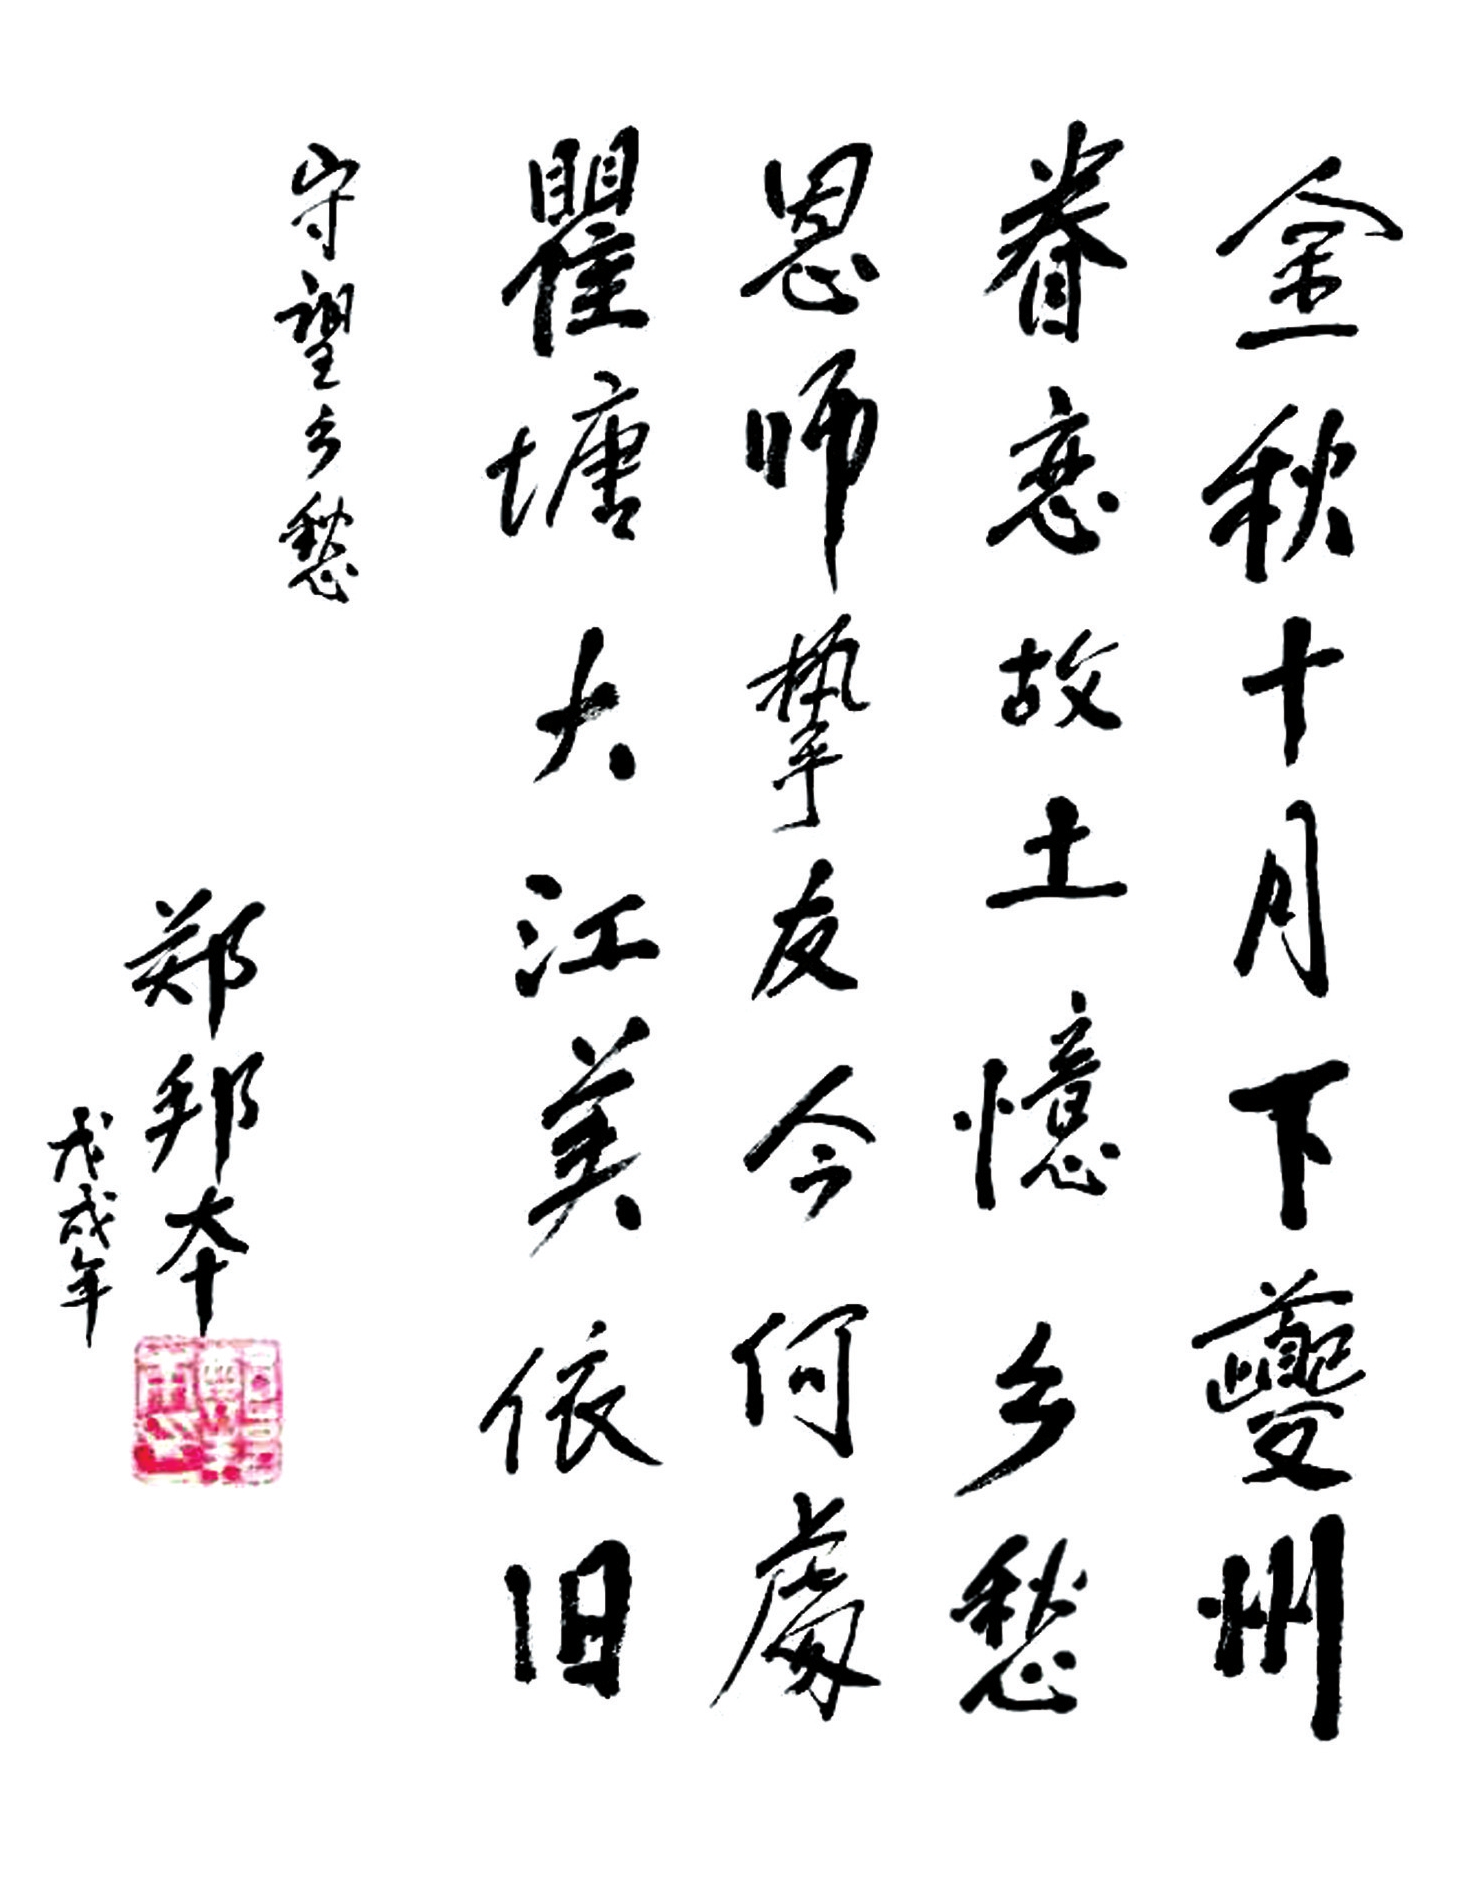 金秋十月下夔州
眷恋故土憶乡愁
恩师挚友今何處
瞿塘大江美依旧
守望乡愁
郑邦本
戊戌年